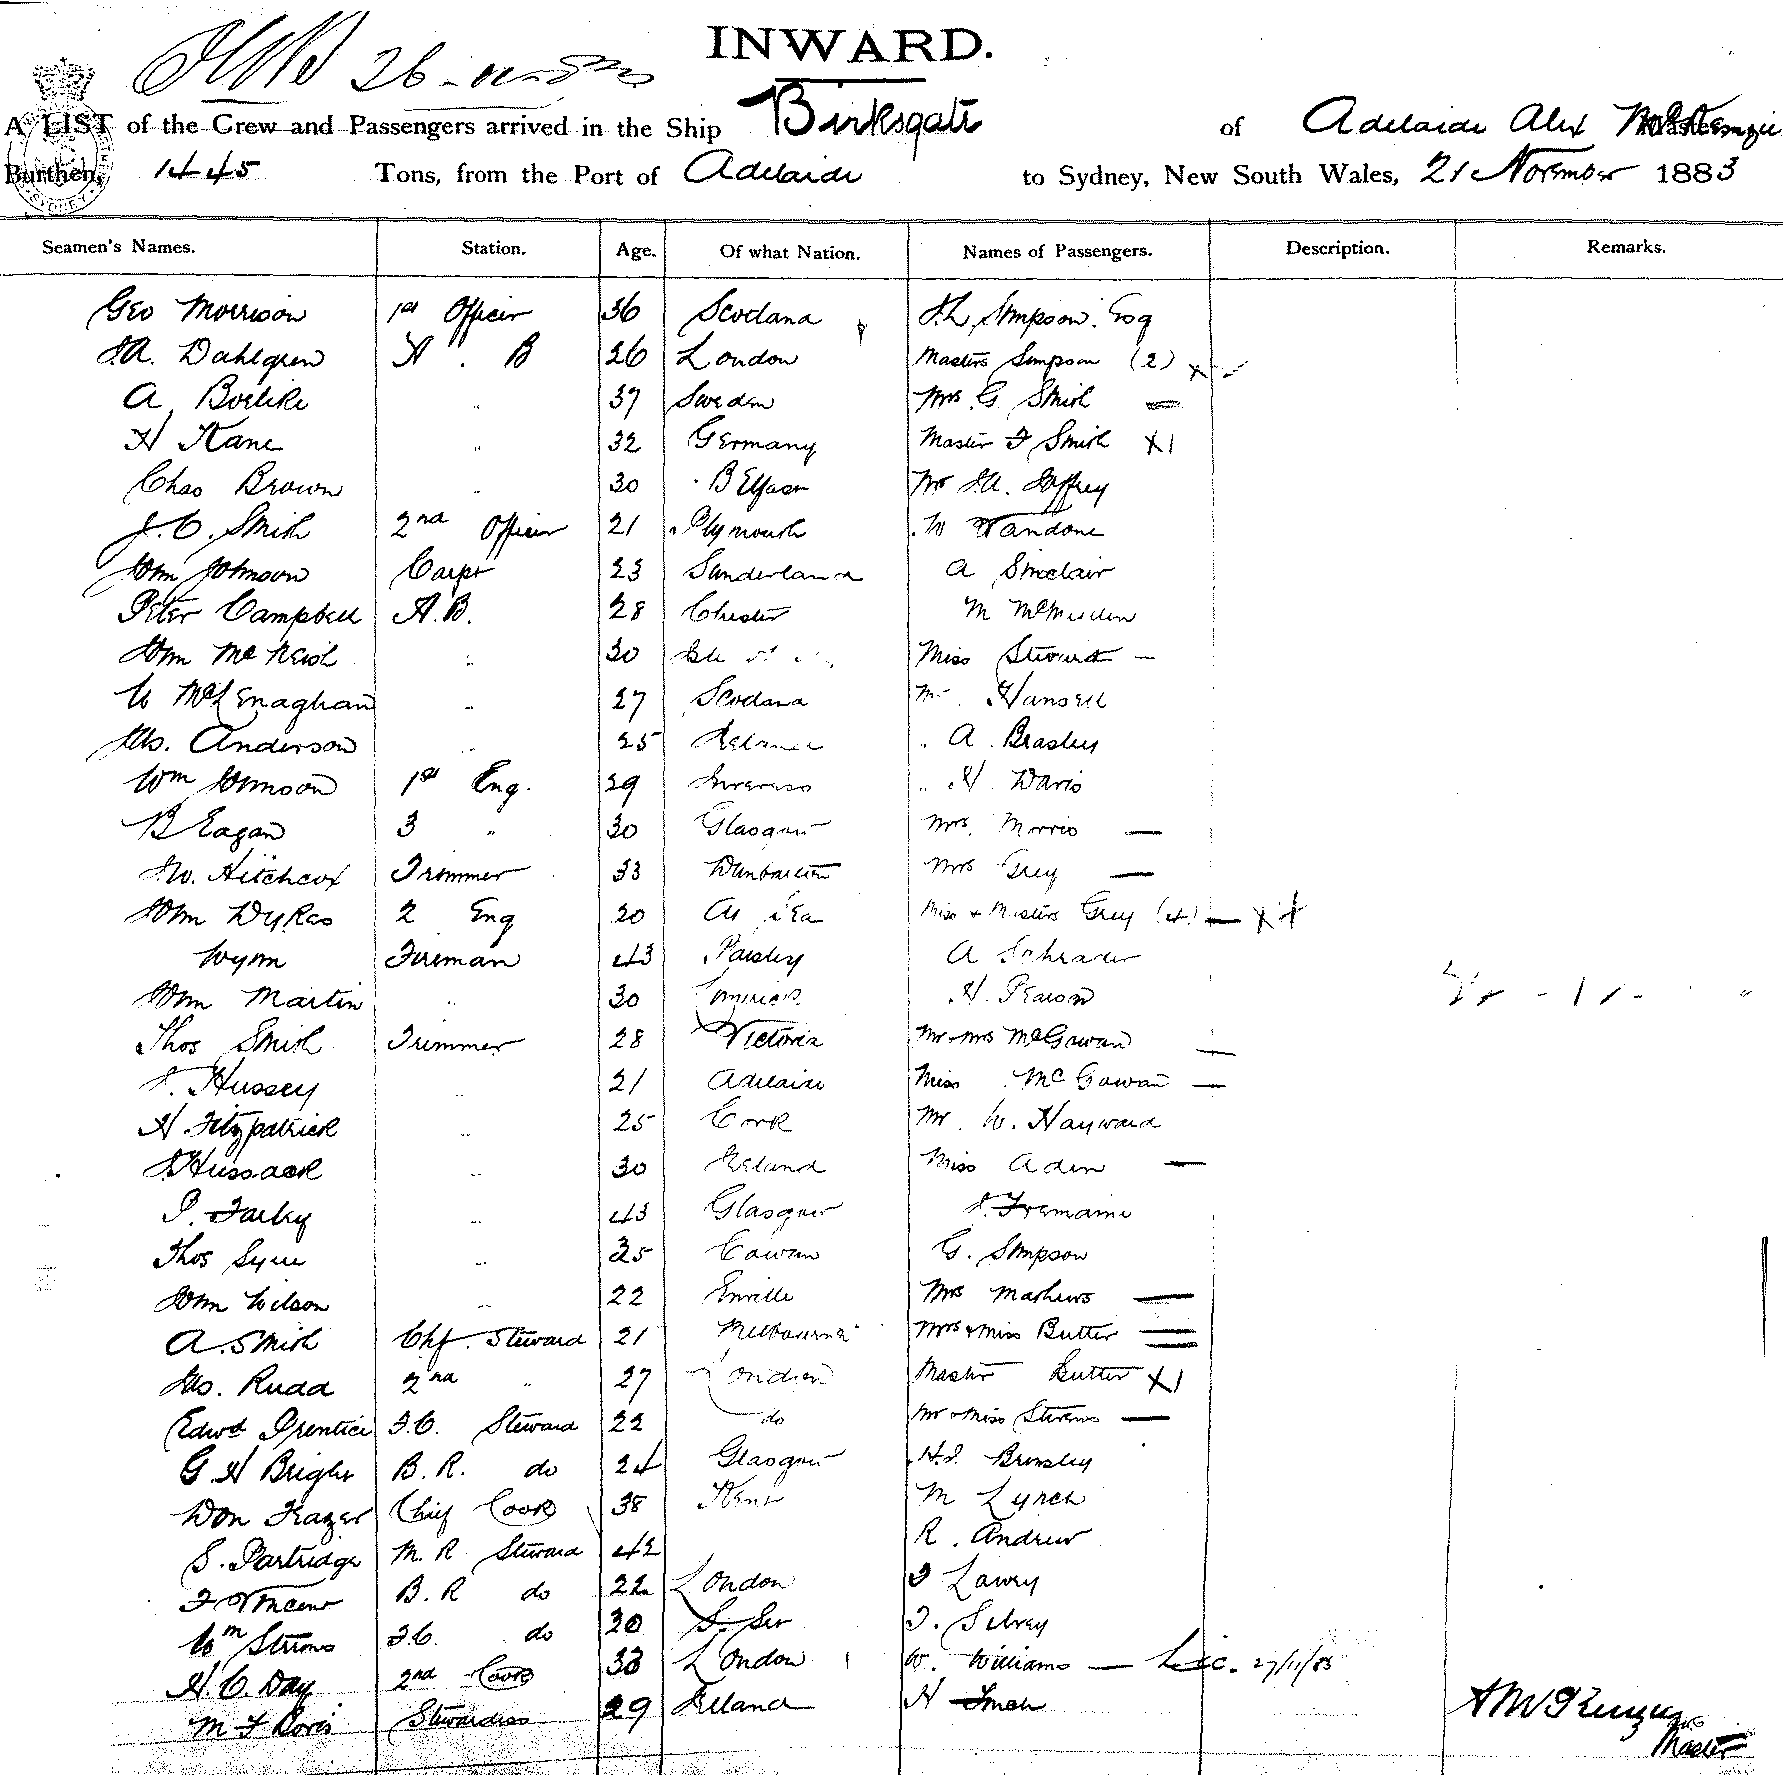 INWARD.
26
A LIST of the Crew and Passengers arrived in the Ship Birksgate of Adelaide Alex McKenzie
Burthen, 1445 Tons, from the Port of Adelaide to Sydney, New South Wales, 21 November 1883
Seamen's Names. Station. Age. Of what Nation. Names of Passengers. Description. Remarks.
Geo Morrison 1st Officer 36 Simpson. Esq
Dahlgren A . B 26 London Masters Simpson (2)
A 37 Sweden Mrs G Smith
H Kane " 32 Germany Master F Smith
Chas Brown " 30 Belfast Mr
J. C. Smith 2nd Officer 21 Plymouth W
Wm Johnson Carpt 23 Sunderland A Sinclair
Peter Campbell A.B. 28 Chester M
Wm " 30 Isle Miss Stewart
" 27 Hansell
Anderson " 25 Ireland " A. Beasley
Wm Johnson 1st Eng. 29 Inverness " H Davis
B Eagan 3 " 30 Glasgow Mrs. Morris
Hitchcox Trimmer 33 Dunbarton Mrs Grey
Wm Dykes 2 Eng 20 At Sea Miss & Masters Grey (4)
Wynn Fireman 43 Paisley A Schrader
Wm Martin " 30 Limerick H. Pearson
Thos Smith Trimmer 28 Victoria Mr & Mrs McGowan
Hussey " 21 Adelaide Miss McGowan
H. Fitzpatrick " 25 Cork Mr W. Hayward
" 30 Ireland Miss Aden
P. " 43 Glasgow Tremaine
Thos Syme " 35 Cowan G. Simpson
Wm Wilson " 22 Mrs Mathews
A. Smith Chf. Steward 21 Melbourne Mrs & Miss Butter
Rudd 2nd " 27 London Master Butter
Edwd Prentice F.C. Steward 22 do Mr & Miss Stevens
G H Bright B. R. do 24 Glasgow
Don Frazer Chief Cook 38 Kent M Lynch
S. Partridge M. R Steward 42 R. Andrew
F Vincent B. R do 22 London Lawry
Wm F.C. do 20
H. C. Day 2nd Cook 33 London W. Williams 27/11/83
M F Stewardess 29 Ireland H
Master